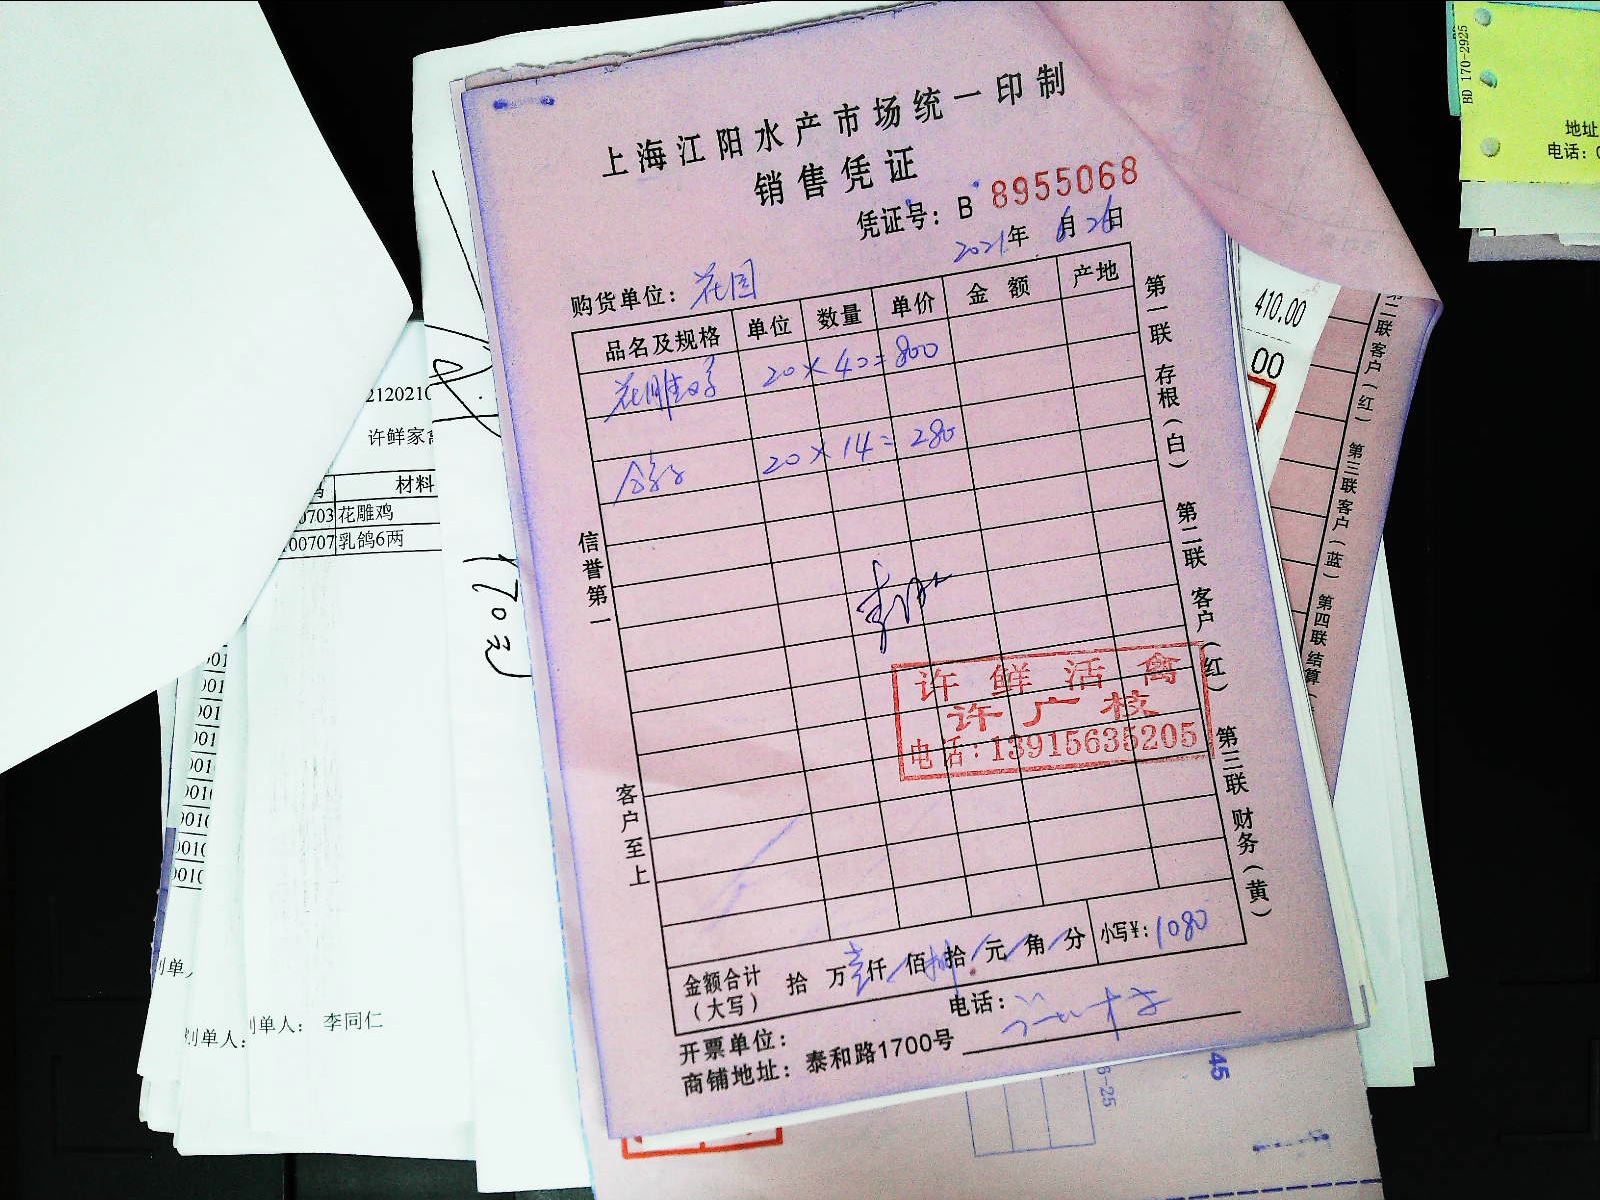 上海江阳水产市场统一印制
销售凭证
凭证号：B 8955068
2021年 6月26日
购货单位：花园
品名及规格 单位 数量 单价 金额 产地
花雕鸡 20×40=800
鸽子 20×14=280
信誉第一
客户至上
第一联 存根（白） 第二联 客户（红） 第三联 财务（黄）
许鲜活禽
许广枝
电话：13915635205
金额合计（大写） 拾 万 壹仟 佰 捌拾 元 角 分 小写¥：1080
开票单位： 电话：
商铺地址：泰和路1700号
BD 170-2925
地址
电话：0
410.00
00
第二联 客户（红） 第三联 客户（蓝） 第四联 结算
2120210
许鲜家禽
材料
0703 花雕鸡
00707 乳鸽6两
170元
001
001
001
001
001
0010
0010
0010
0010
制单人
制单人：
制单人： 李同仁
45
6-25